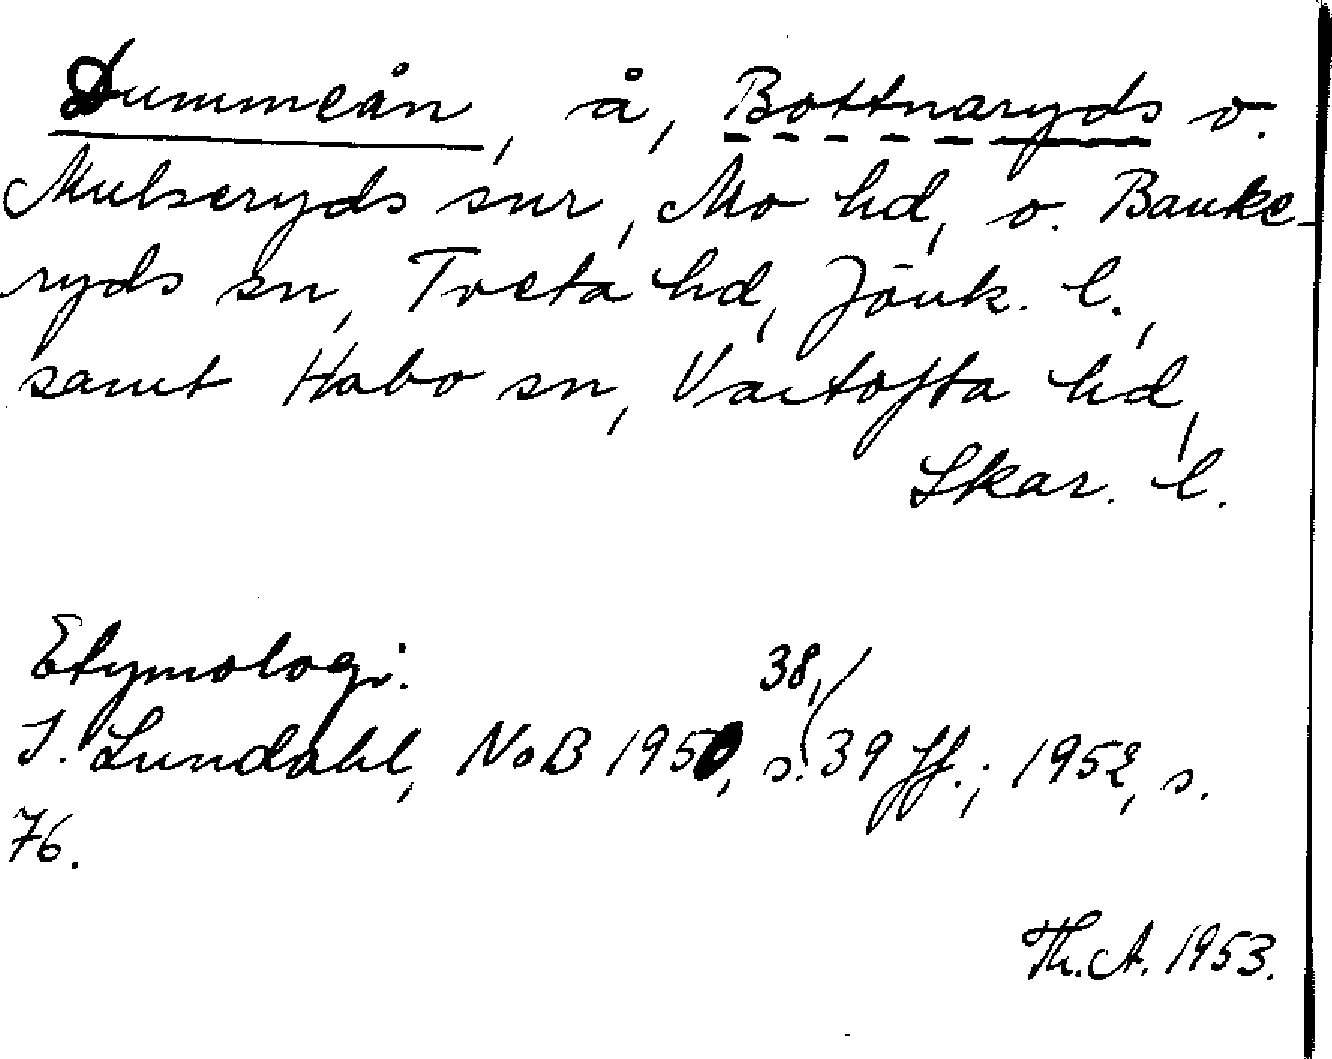 Dummeån, å, Bottnaryds o.
Mulseryds snr, Mo hd, o. Banke-
ryds sn, Tveta hd, Jönk. l.,
samt Habo sn, Vartofta hd,
Skar. l.
Etymologi:
I. Lundahl, NoB 1950, s. 38, 39 ff.; 1952, s.
76.
Th. A. 1953.